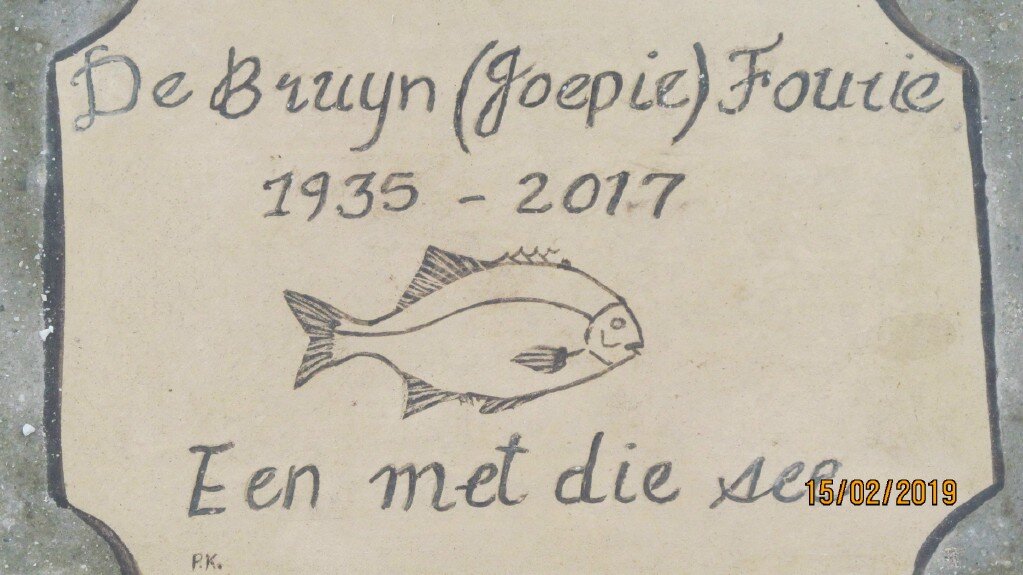 De Bruyn (Joepie) Fourie
1935 - 2017
Een met die see
15/02/2019
P.K.